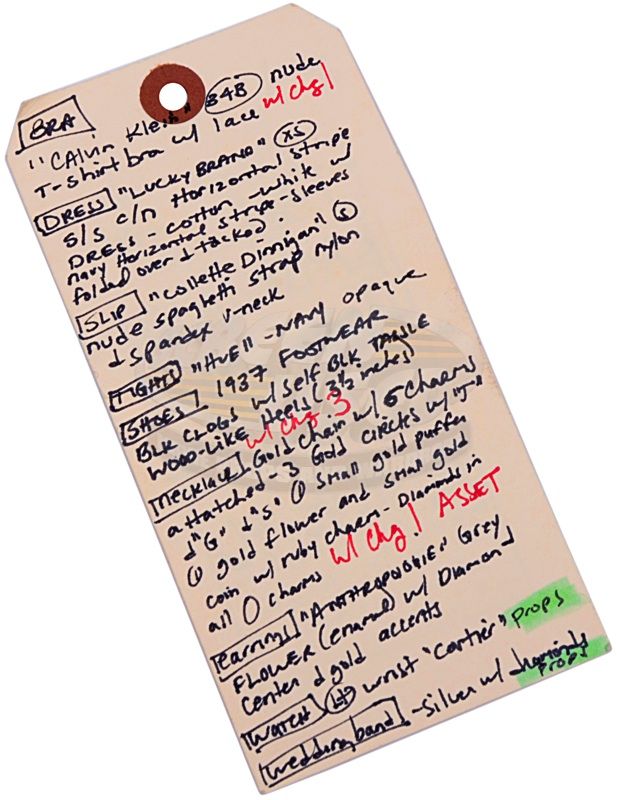 BRA
"CALVIN Klein" 34B nude
T-shirt bra w/ lace w/ chg 1
DRESS "LUCKY BRAND" XS
S/S c/n Horizontal stripe
DRESS - cotton - white w/
navy Horizontal stripe - sleeves
folded over & tacked.
SLIP "Collette Dinnigan" S
nude spaghetti strap nylon
& spandex v-neck
TIGHTS "HUE" - NAVY opaque
SHOES 1937 FOOTWEAR
BLK CLOGS w/ self BLK TABLE
WOOD-LIKE Heels (3½ inches)
w/ chg 3
Necklace Gold Chain w/ 6 charms
attatched - 3 Gold circles w/ "J"
&"G" &"S" ① small gold puffer
① gold flower and small gold
coin w/ ruby charm - Diamonds in
all O charms w/ chg 1 ASSET
Earrings "ANTHROPOLOGIE" Grey
FLOWER (enamel) w/ Diamond
center & gold accents
WATCH Lt wrist "Cartier" props
wedding band - silver w/ diamonds
props